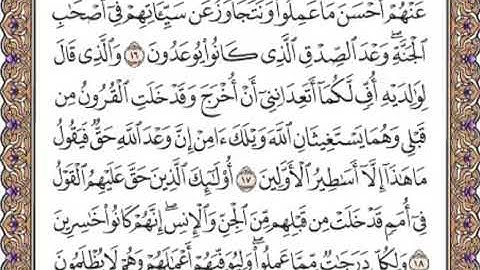 عَنْهُمْ أَحْسَنَ مَا عَمِلُوا۟ وَنَتَجَاوَزُ عَن سَيِّـَٔاتِهِمْ فِىٓ أَصْحَٰبِ
ٱلْجَنَّةِ ۖ وَعْدَ ٱلصِّدْقِ ٱلَّذِى كَانُوا۟ يُوعَدُونَ ١٦ وَٱلَّذِى قَالَ
لِوَٰلِدَيْهِ أُفٍّ لَّكُمَآ أَتَعِدَانِنِىٓ أَنْ أُخْرَجَ وَقَدْ خَلَتِ ٱلْقُرُونُ مِن
قَبْلِى وَهُمَا يَسْتَغِيثَانِ ٱللَّهَ وَيْلَكَ ءَامِنْ إِنَّ وَعْدَ ٱللَّهِ حَقٌّ فَيَقُولُ
مَا هَٰذَآ إِلَّآ أَسَٰطِيرُ ٱلْأَوَّلِينَ ١٧ أُو۟لَٰٓئِكَ ٱلَّذِينَ حَقَّ عَلَيْهِمُ ٱلْقَوْلُ
فِىٓ أُمَمٍ قَدْ خَلَتْ مِن قَبْلِهِم مِّنَ ٱلْجِنِّ وَٱلْإِنسِ ۖ إِنَّهُمْ كَانُوا۟ خَٰسِرِينَ
١٨ وَلِكُلٍّ دَرَجَٰتٌ مِّمَّا عَمِلُوا۟ ۖ وَلِيُوَفِّيَهُمْ أَعْمَٰلَهُمْ وَهُمْ لَا يُظْلَمُونَ